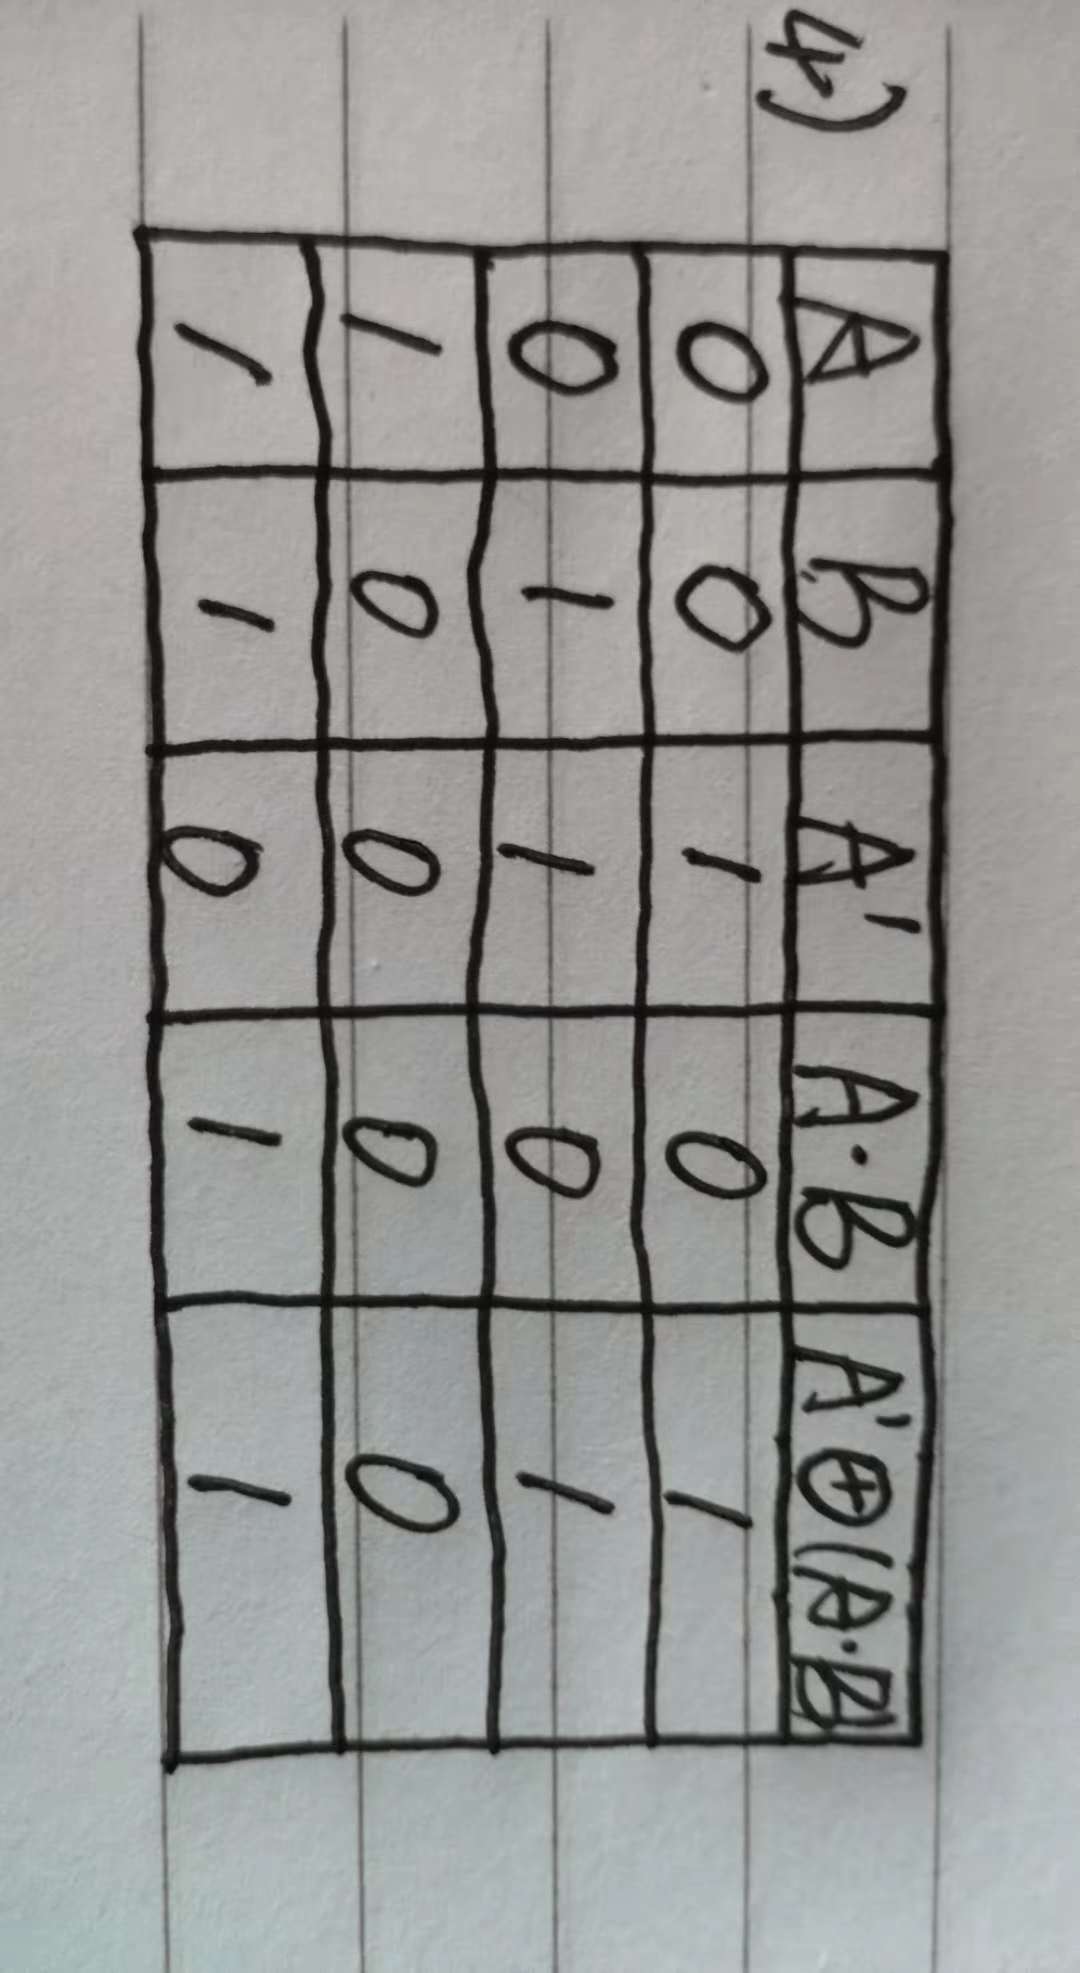 4)
A B A' A·B A'⊕(A·B)
0 0 1 0 1
0 1 1 0 1
1 0 0 0 0
1 1 0 1 1